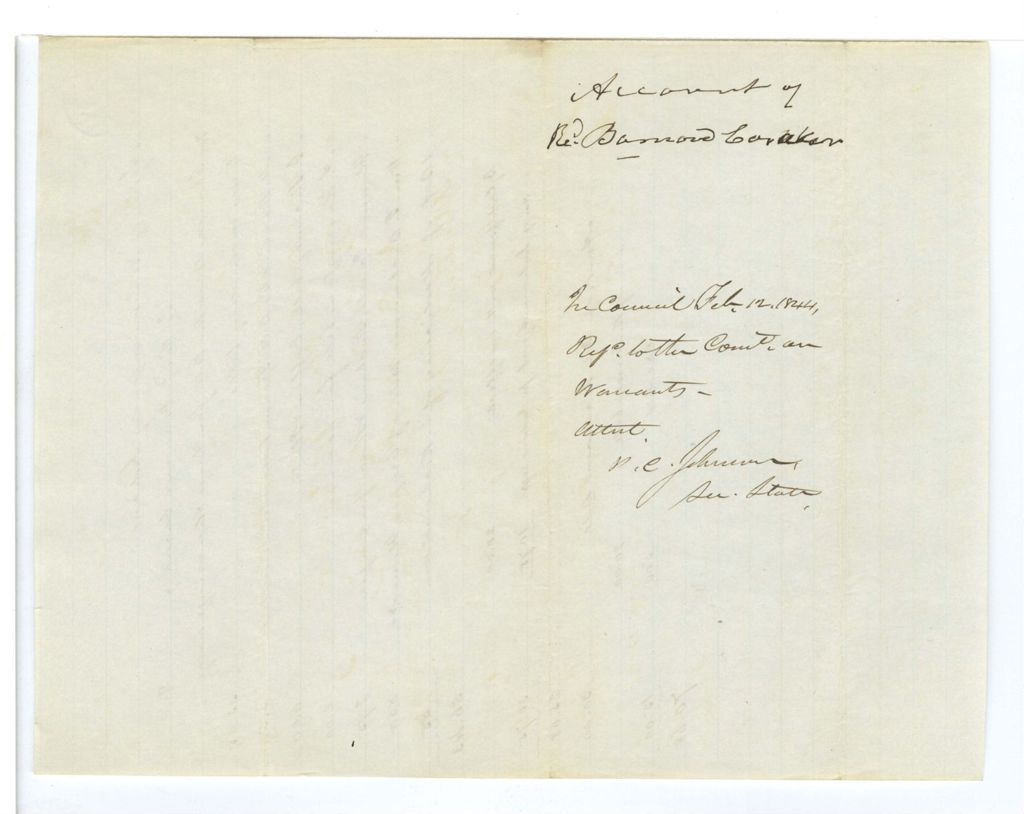 Account of
Barnard
In Council Feb. 12. 1844,
Refd. to the Comte. on
Warrants -
Attest.
P. C. Johnson,
Sec. State,